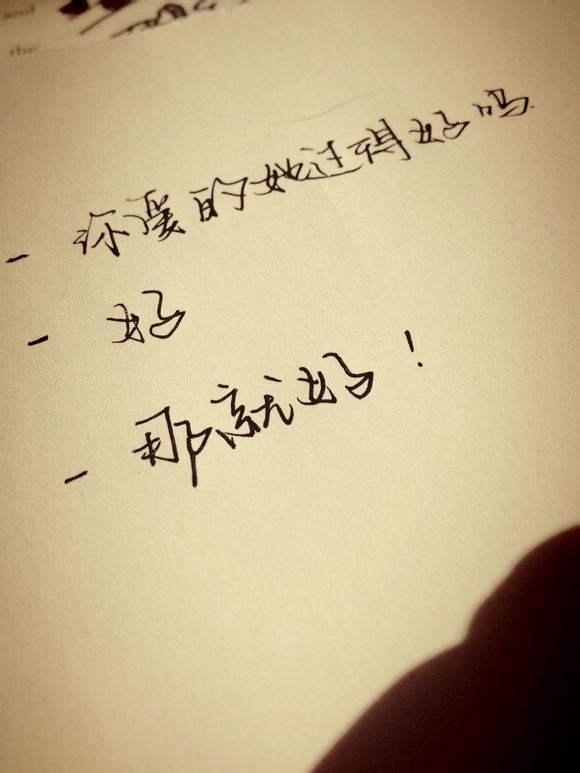 and
the
- 你爱的她过得好吗
- 好
- 那就好！